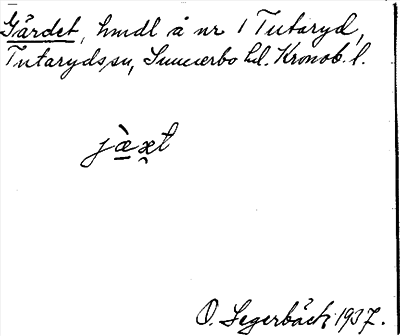 Gärdet, hmdl å nr 1 Tutaryd,
Tutaryds sn, Sunnerbo hd. Kronob. l.
jæ̀xt
O. Segerbäck 1937.